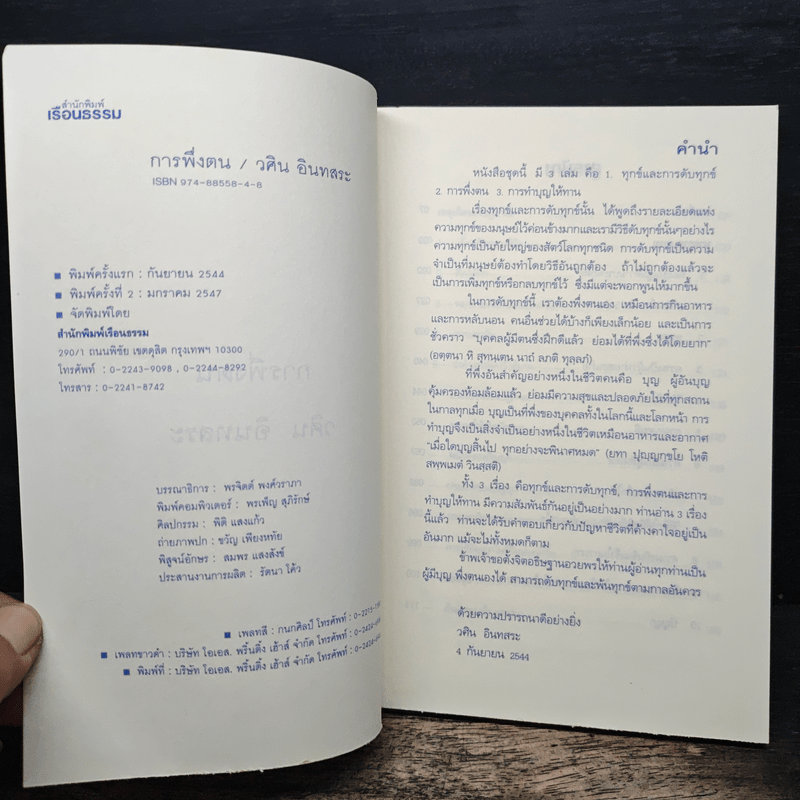 สำนักพิมพ์
เรือนธรรม
การพึ่งตน / วศิน อินทสระ
ISBN 974-88558-4-8
■ พิมพ์ครั้งแรก : กันยายน 2544
■ พิมพ์ครั้งที่ 2 : มกราคม 2547
■ จัดพิมพ์โดย
สำนักพิมพ์เรือนธรรม
290/1 ถนนพิชัย เขตดุสิต กรุงเทพฯ 10300
โทรศัพท์ : 0-2243-9098 , 0-2244-8292
โทรสาร : 0-2241-8742
บรรณาธิการ : พรจิตต์ พงศ์วราภา
พิมพ์คอมพิวเตอร์ : พรเพ็ญ สุภิรักษ์
ศิลปกรรม : พิติ แสงแก้ว
ถ่ายภาพปก : ขวัญ เพียงหทัย
พิสูจน์อักษร : สมพร แสงสังข์
ประสานงานการผลิต : รัตนา โค้ว
■ เพลทสี : กนกศิลป์ โทรศัพท์ : 0-2215-
■ เพลทขาวดำ : บริษัท โอเอส. พริ้นติ้ง เฮ้าส์ จำกัด โทรศัพท์ : 0-2424-
■ พิมพ์ที่ : บริษัท โอเอส. พริ้นติ้ง เฮ้าส์ จำกัด โทรศัพท์ : 0-2424-
คำนำ
หนังสือชุดนี้ มี 3 เล่ม คือ 1. ทุกข์และการดับทุกข์
2. การพึ่งตน 3. การทำบุญให้ทาน
เรื่องทุกข์และการดับทุกข์นั้น ได้พูดถึงรายละเอียดแห่ง
ความทุกข์ของมนุษย์ไว้ค่อนข้างมากและเรามีวิธีดับทุกข์นั้นๆอย่างไร
ความทุกข์เป็นภัยใหญ่ของสัตว์โลกทุกชนิด การดับทุกข์เป็นความ
จำเป็นที่มนุษย์ต้องทำโดยวิธีอันถูกต้อง ถ้าไม่ถูกต้องแล้วจะ
เป็นการเพิ่มทุกข์หรือกลบทุกข์ไว้ ซึ่งมีแต่จะพอกพูนให้มากขึ้น
ในการดับทุกข์นี้ เราต้องพึ่งตนเอง เหมือนการกินอาหาร
และการหลับนอน คนอื่นช่วยได้บ้างก็เพียงเล็กน้อย และเป็นการ
ชั่วคราว "บุคคลผู้มีตนซึ่งฝึกดีแล้ว ย่อมได้ที่พึ่งซึ่งได้โดยยาก"
(อตฺตนา หิ สุทนฺเตน นาถํ ลภติ ทุลฺลภํ)
ที่พึ่งอันสำคัญอย่างหนึ่งในชีวิตคนคือ บุญ ผู้อันบุญ
คุ้มครองห้อมล้อมแล้ว ย่อมมีความสุขและปลอดภัยในที่ทุกสถาน
ในกาลทุกเมื่อ บุญเป็นที่พึ่งของบุคคลทั้งในโลกนี้และโลกหน้า การ
ทำบุญจึงเป็นสิ่งจำเป็นอย่างหนึ่งในชีวิตเหมือนอาหารและอากาศ
"เมื่อใดบุญสิ้นไป ทุกอย่างจะพินาศหมด" (ยทา ปุญฺญกฺขโย โหติ
สพฺพเมตํ วินสฺสติ)
ทั้ง 3 เรื่อง คือทุกข์และการดับทุกข์, การพึ่งตนและการ
ทำบุญให้ทาน มีความสัมพันธ์กันอยู่เป็นอย่างมาก ท่านอ่าน 3 เรื่อง
นี้แล้ว ท่านจะได้รับคำตอบเกี่ยวกับปัญหาชีวิตที่ค้างคาใจอยู่เป็น
อันมาก แม้จะไม่ทั้งหมดก็ตาม
ข้าพเจ้าขอตั้งจิตอธิษฐานอวยพรให้ท่านผู้อ่านทุกท่านเป็น
ผู้มีบุญ พึ่งตนเองได้ สามารถดับทุกข์และพ้นทุกข์ตามกาลอันควร
ด้วยความปรารถนาดีอย่างยิ่ง
วศิน อินทสระ
4 กันยายน 2544